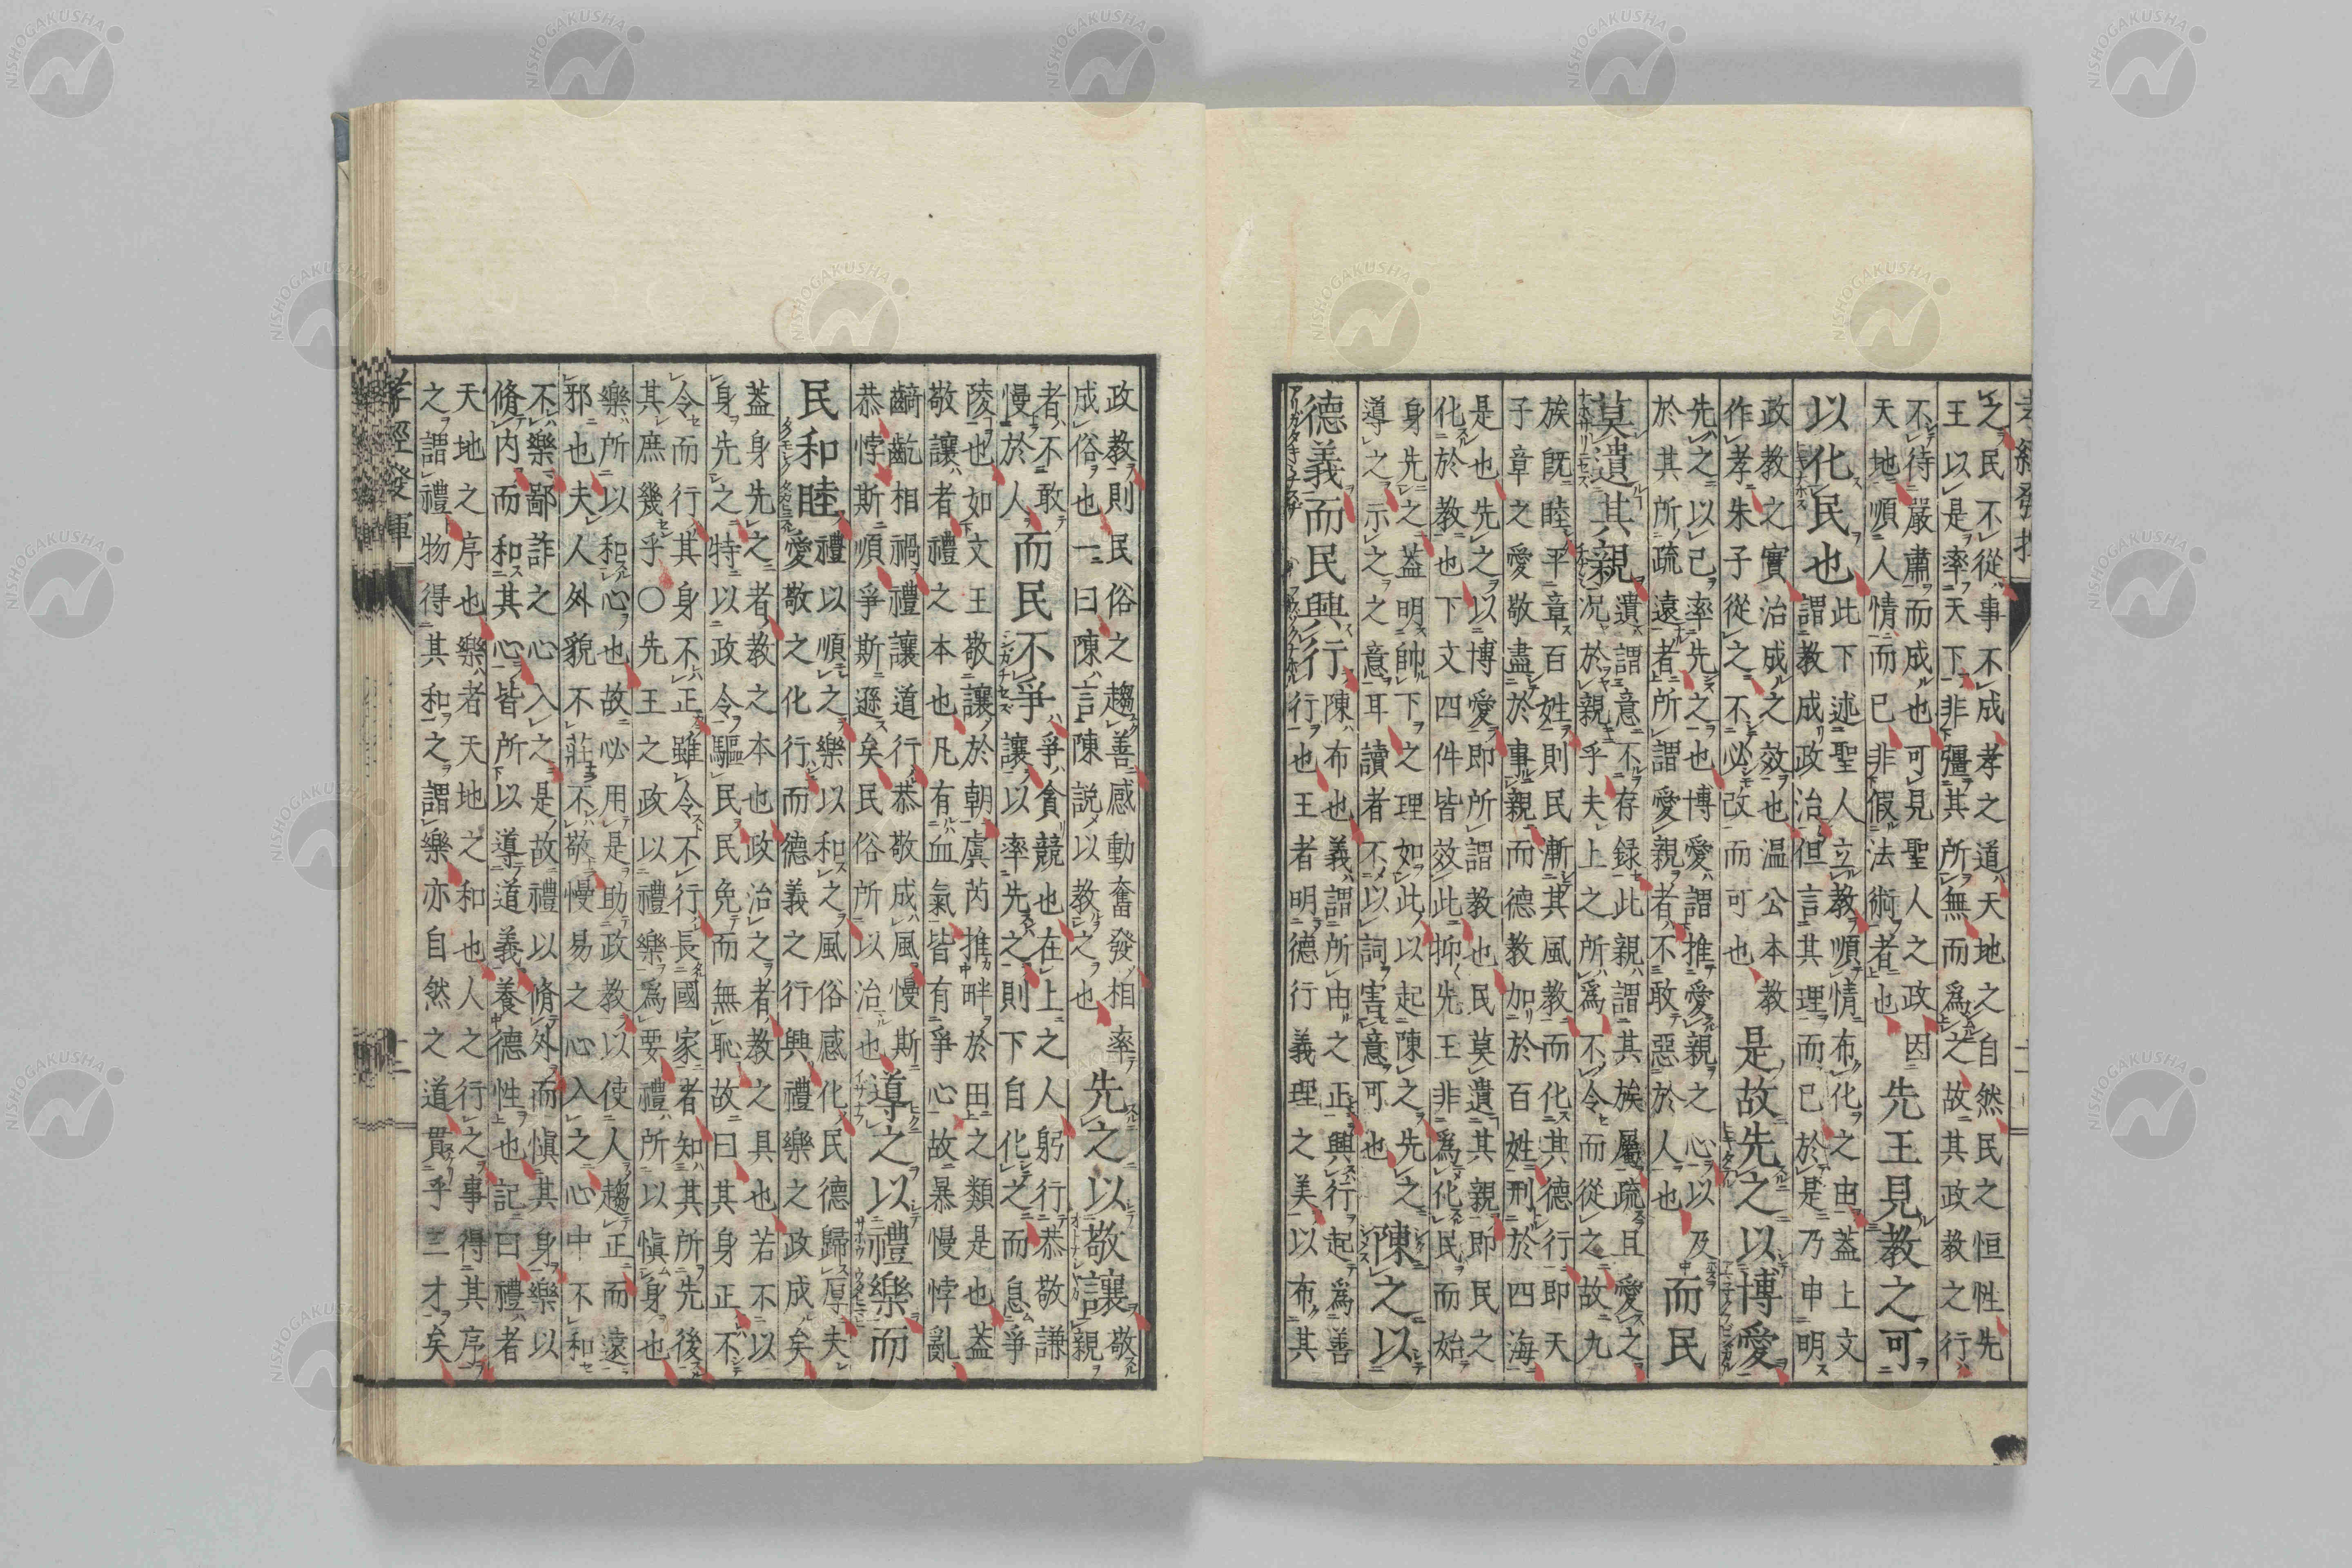 孝經發揮
之民不從事不成孝之道天地之自然民之恒性先
王以是率天下非彊其所無而為之故其政教之行
不待嚴肅而成也可見聖人之政因
天地順人情而已非假法術者也
先王見教之可
以化民也
此下述聖人立教順情布化之由蓋上文
謂教成政治但言其理而已於是乃申明
政教之實治成之效也温公本教
作孝朱子從之不必改而可也
是故先之以博愛
先之以己率先之也博愛謂推愛親之心以及
於其所疏遠者所謂愛親者不敢惡於人也
而民
莫遺其親
遺謂意不存録此親謂其族屬疏且愛之
况於親乎夫上之所為不令而從之故九
族既睦平章百姓則民漸其風教而化其德行即天
子章之愛敬盡於事親而德教加於百姓刑於四海
是也先之以博愛即所謂教也民莫遺其親即民之
化於教也下文四件皆效此抑先王非為化民而始
身先之蓋明帥下之理如此以起陳之先之
導之示之之意耳讀者不以詞害意可也
陳之以
德義而民興行
陳布也義謂所由之正興行起為善
行也王者明德行義理之美以布其
政教則民俗之趨善感動奮發相率
成俗也一曰陳言陳説以教之也
先之以敬讓
敬
親
者不敢
慢於人
而民不爭
爭貪競也在上之人躬行恭敬謙
讓以率先之則下自化之而息爭
陵也如文王敬讓於朝虞芮推畔於田之類是也蓋
敬讓者禮之本也凡有血氣皆有爭心故暴慢悖亂
齮齕相禍禮讓道行恭敬成風慢斯
恭悖斯順爭斯遜矣民俗所以治也
導之以禮樂而
民和睦
禮以順之樂以和之風俗感化民德歸厚夫
愛敬之化行而德義之行興禮樂之政成矣
蓋身先之者教之本也政治之者教之具也若不以
身先之特以政令驅民民免而無恥故曰其身正不
令而行其身不正雖令不行長國家者知其所先後
其庶幾乎○先王之政以禮樂為要禮所以愼身也
樂所以和心也故必用是助政教以使人趨正而遠
邪也夫人外貌不莊不敬慢易之心入之心中不和
不樂鄙詐之心入之是故禮以脩外而愼其身樂以
脩内而和其心皆所以導道義養德性也記曰禮者
天地之序也樂者天地之和也人之行之事得其序
之謂禮物得其和之謂樂亦自然之道貫乎三才矣
孝經發揮